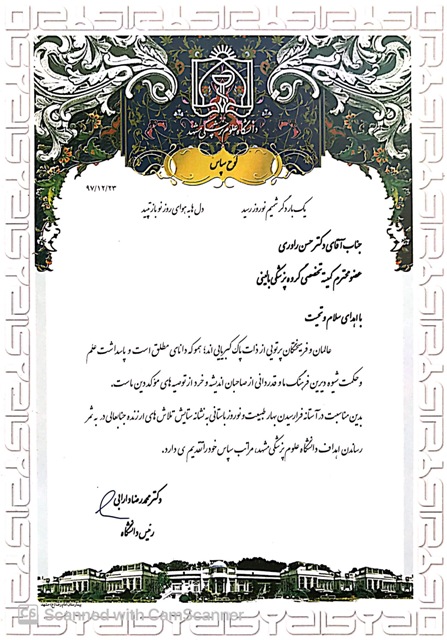 دانشگاه علوم پزشکی مشهد
لوح سپاس
۹۷/۱۲/۲۳
یک بار دگر شمیم نوروز رسید دل ها به هوای روز نو باز تپید
جناب آقای دکتر حسن راوری
عضو محترم کمیته تخصصی گروه پزشکی بالینی
با اهدای سلام و تحیت
عالمان و فرهیختگان پرتویی از ذات پاک کبریایی اند؛ همو که دانای مطلق است و پاسداشت علم
و حکمت شیوه دیرین فرهنگ ما و قدردانی از صاحبان اندیشه و خرد از توصیه های مؤکد دین ماست.
بدین مناسبت در آستانه فرارسیدن بهار طبیعت و نوروز باستانی به نشانه ستایش تلاش های ارزنده جنابعالی در به ثمر
رساندن اهداف دانشگاه علوم پزشکی مشهد، مراتب سپاس خود را تقدیم می دارد.
دکتر محمدرضا دارابی
رئیس دانشگاه
CS Scanned with CamScanner